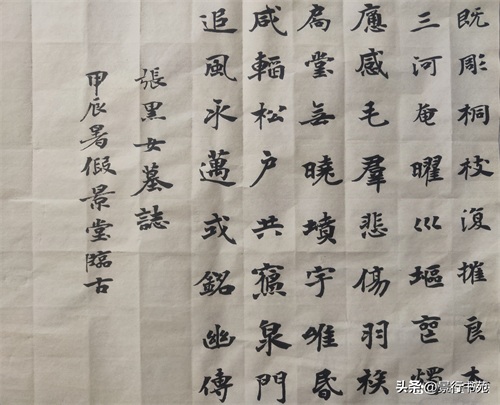 既彫桐枝復摧良木
三河奄曜巛塸燭
應感毛羣悲傷羽族
扃堂無曉墳宇唯昏
咸輻松户共窺泉門
追風永邁式銘幽傳
張黑女墓誌
甲辰暑假景堂臨古
头条 @景行书苑